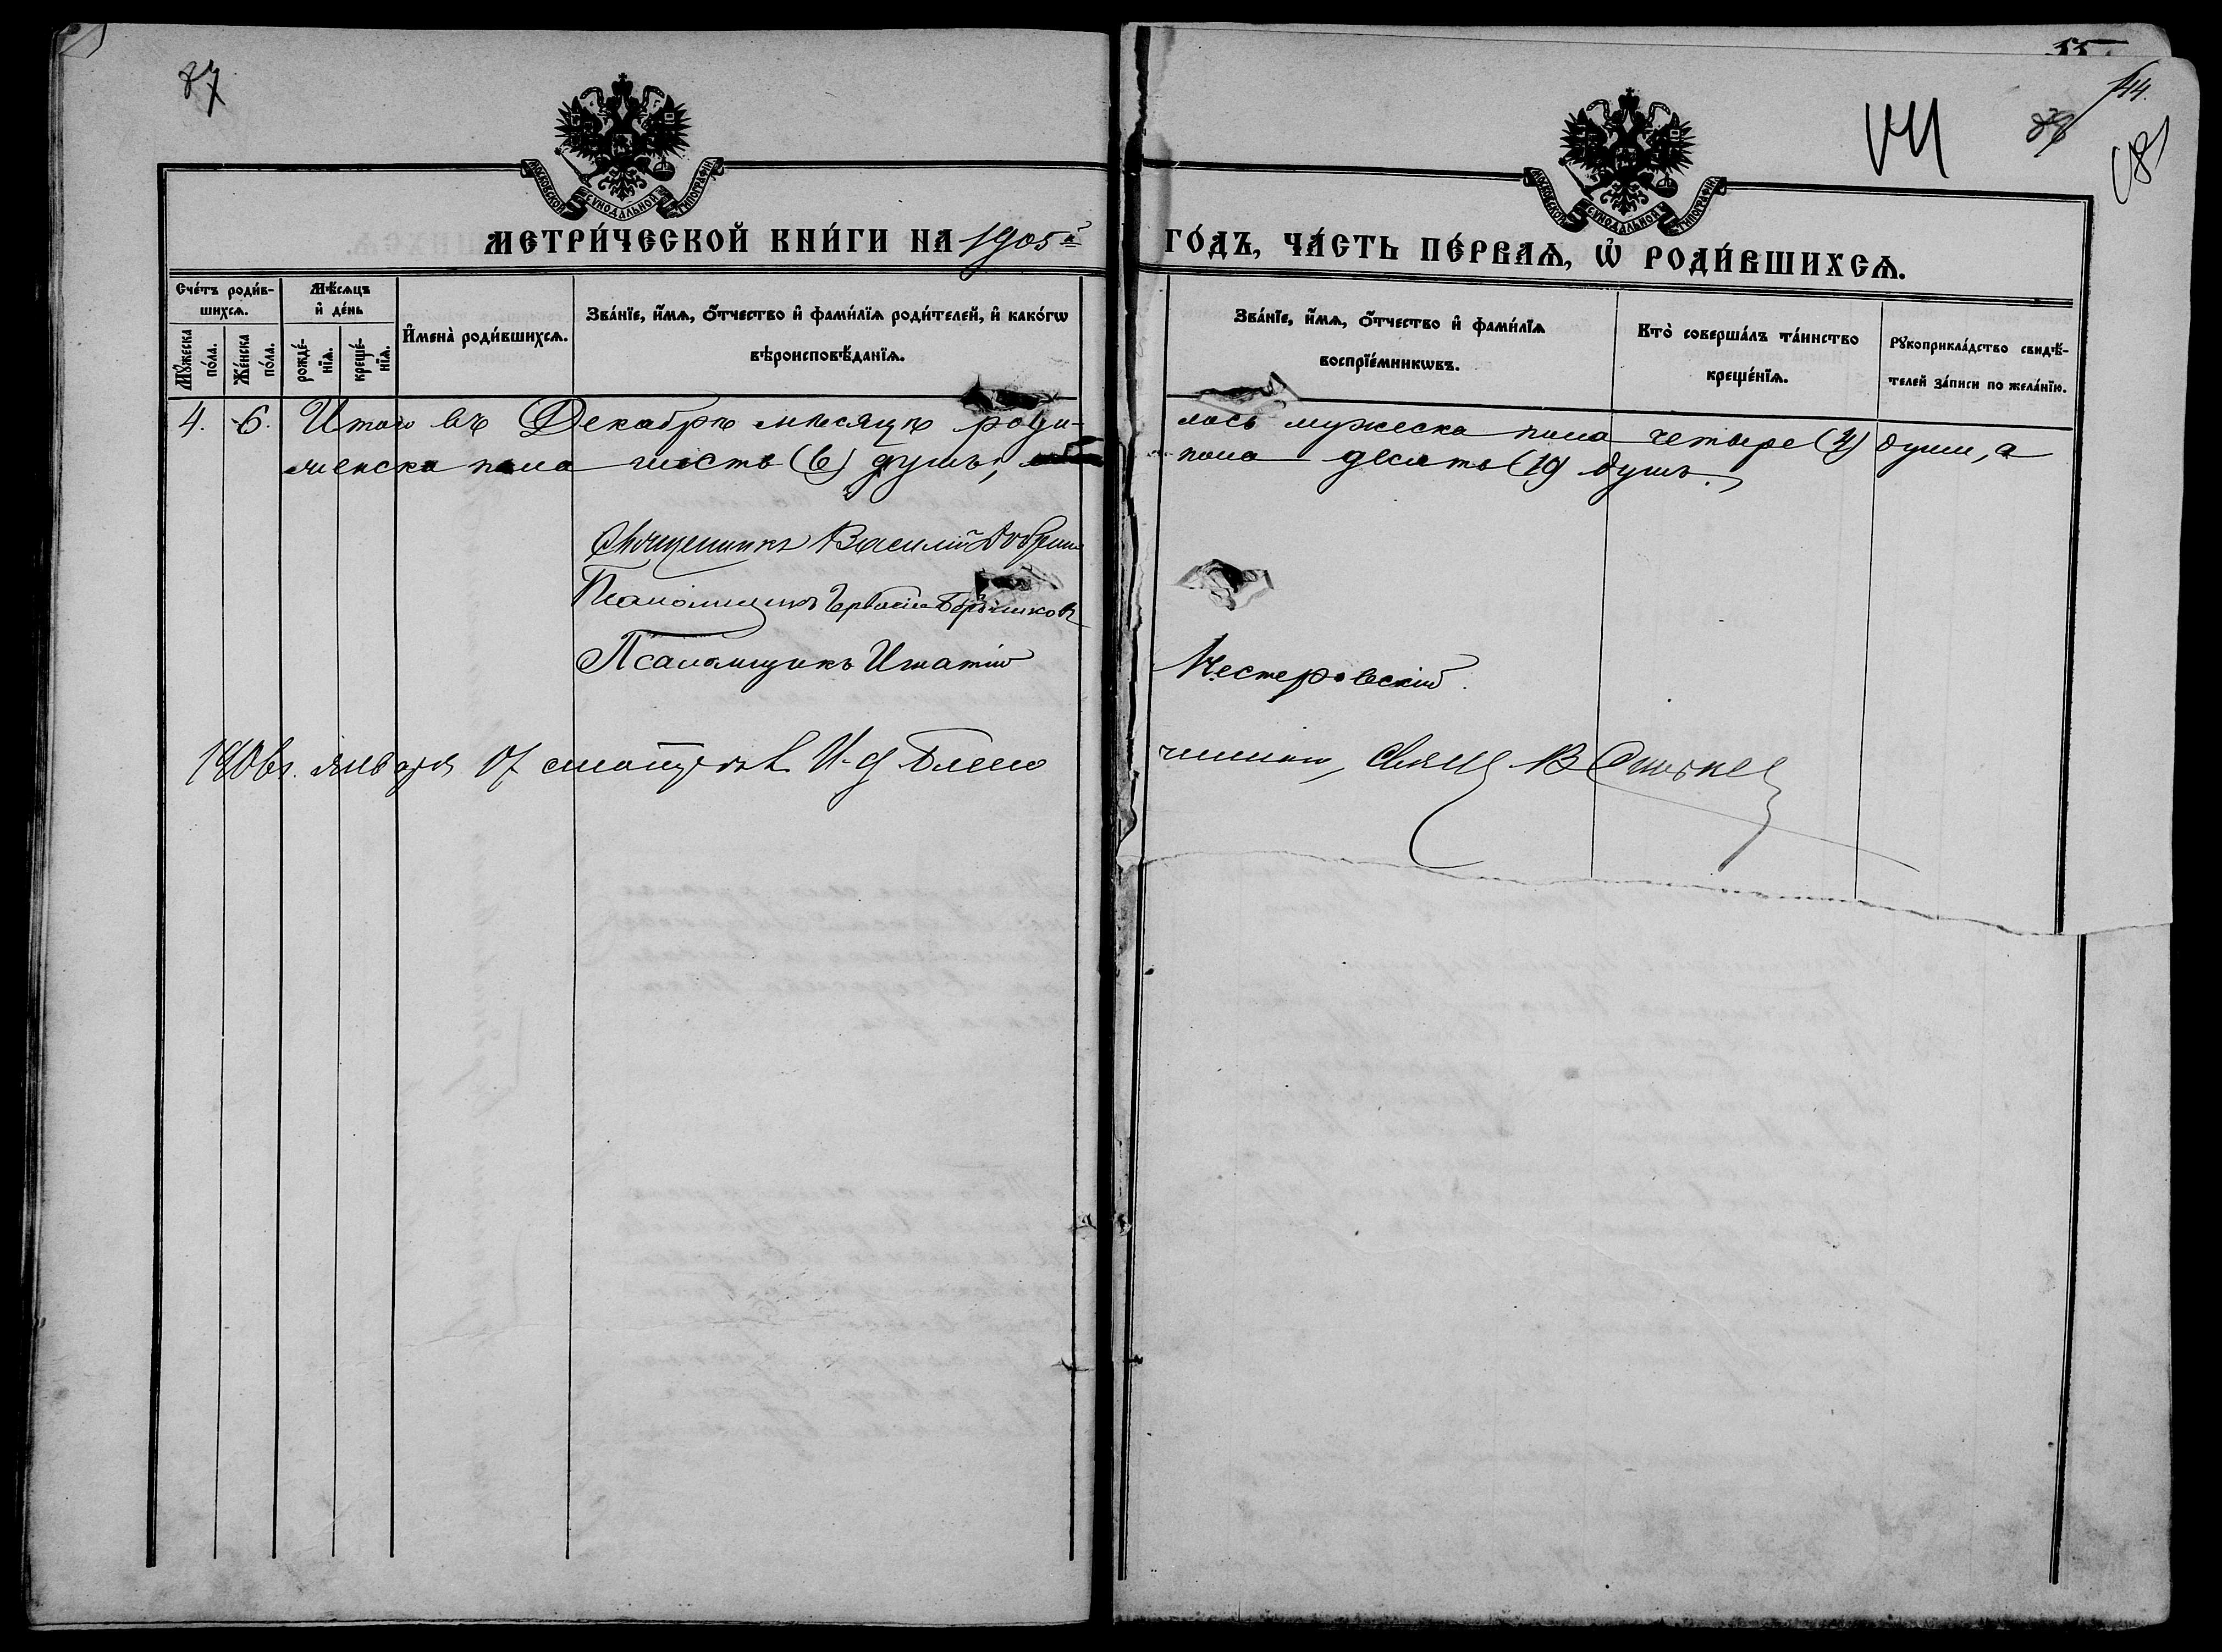 87
55
44.
88
144
181
МОСКОВСКОЙ СѴНОДАЛЬНОЙ ТИПОГРАФІИ
МОСКОВСКОЙ СѴНОДАЛЬНОЙ ТИПОГРАФІИ
МЕТРИ́ЧЕСКОЙ КНИ́ГИ НА 1905й ГО́ДЪ, ЧА́СТЬ ПЕ́РВАѦ, Ѡ҆ РОДИ́ВШИХСѦ.
Сче́тъ роди́в-
шихсѧ.
Мꙋ́жеска по́ла.
Же́нска по́ла.
Мѣ́сѧцъ
и҆ де́нь
рожде́-нїѧ.
креще́-нїѧ.
И҆мена̀ роди́вшихсѧ.
Зва́нїе, и҆́мѧ, ѻ҆́тчество и҆ фами́лїѧ роди́телей, и҆ како́гѡ
вѣроисповѣ́данїѧ.
Зва́нїе, и҆́мѧ, ѻ҆́тчество и҆ фами́лїѧ
воспрїе́мникѡвъ.
Кто̀ соверша́лъ та́инство
креще́нїѧ.
Рꙋкоприкла́дство свидѣ́-
телей за́писи по жела́нїю.
4. 6. Итого въ Декабрѣ мѣсяцѣ роди-лось мужеска пола четыре (4) души, а
женска пола шесть (6) душъ, пола десять (10) душъ.
Священникъ Василій
Псаломщикъ
Псаломщикъ Игнатій Нестеровскій.
1906 г. января 17 смотрѣлъ И. д. Благочиннаго, Свящ. В.